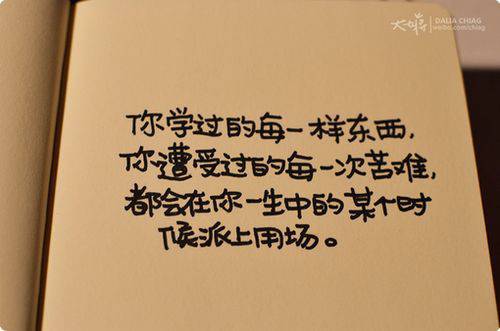 DALIA CHIAG
weibo.com/chiag
你学过的每一样东西,
你遭受过的每一次苦难,
都会在你一生中的某个时
候派上用场。